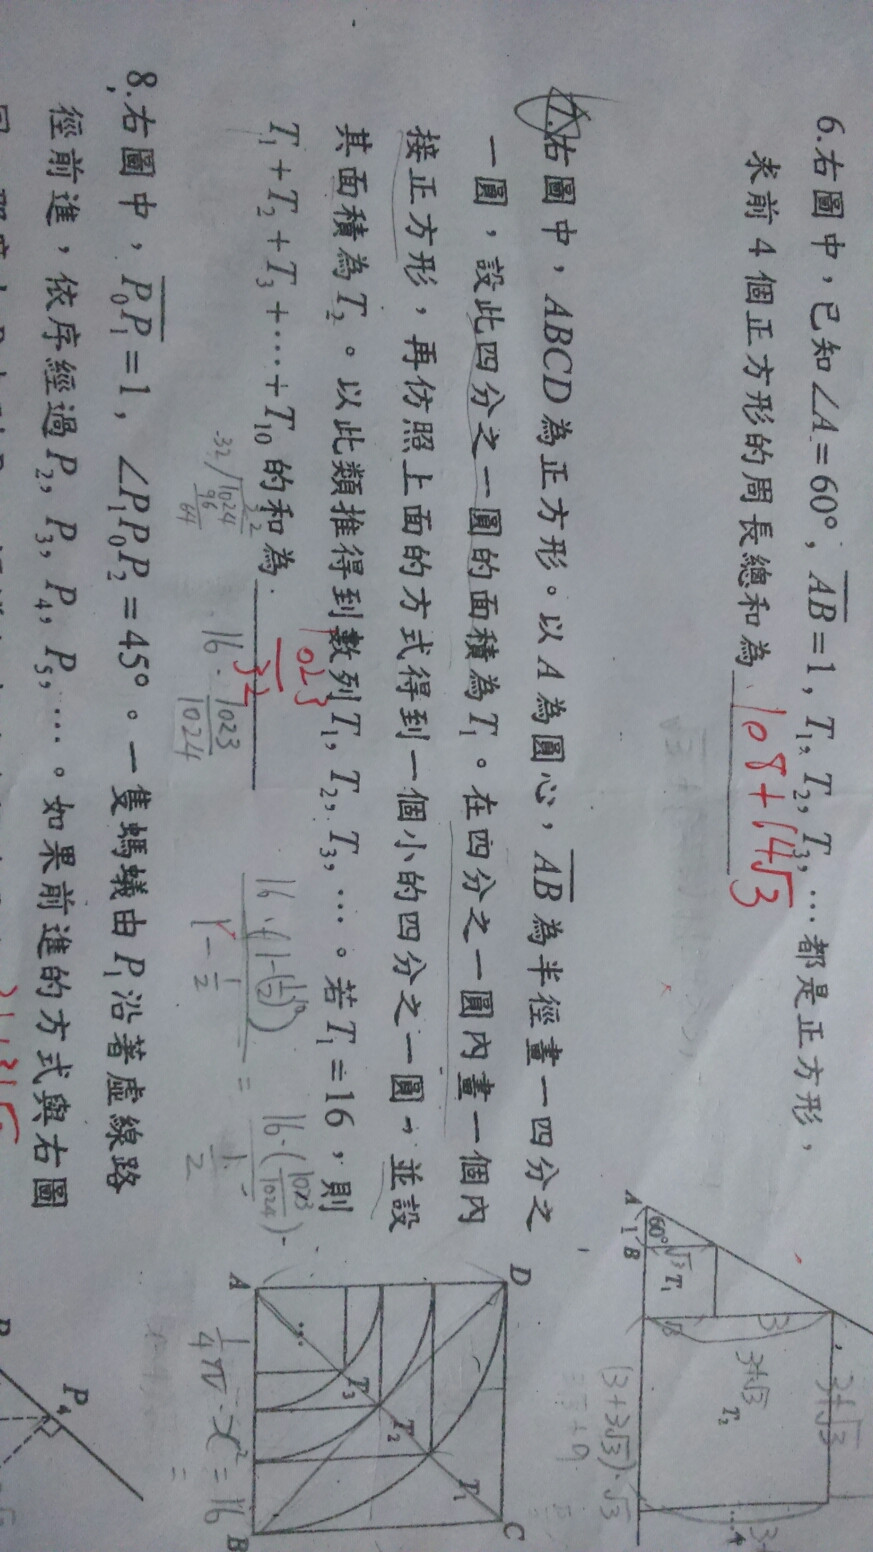 6.右圖中，已知∠A=60°，AB=1，T₁，T₂，T₃，…都是正方形，
求前4個正方形的周長總和為
108+14√3
7.右圖中，ABCD為正方形。以A為圓心，AB為半徑畫一四分之
一圓，設此四分之一圓的面積為T₁。在四分之一圓內畫一個內
接正方形，再仿照上面的方式得到一個小的四分之一圓，並設
其面積為T₂。以此類推得到數列T₁，T₂，T₃，…。若T₁=16，則
T₁+T₂+T₃+…+T₁₀的和為
1023/32
16·1023/1024
16·(1-(1/2)¹⁰)
1-1/2
=
16·(1023/1024)
1/2
8.右圖中，P₀P₁=1，∠P₁P₀P₂=45°。一隻螞蟻由P₁沿著虛線路
徑前進，依序經過P₂，P₃，P₄，P₅，…。如果前進的方式與右圖
A
60°
1
B
√3
T₁
3
3+√3
T₂
3+√3
(3+3√3)·√3
D
C
A
B
T₁
T₂
T₃
…
1/4π·x²=16
P₄